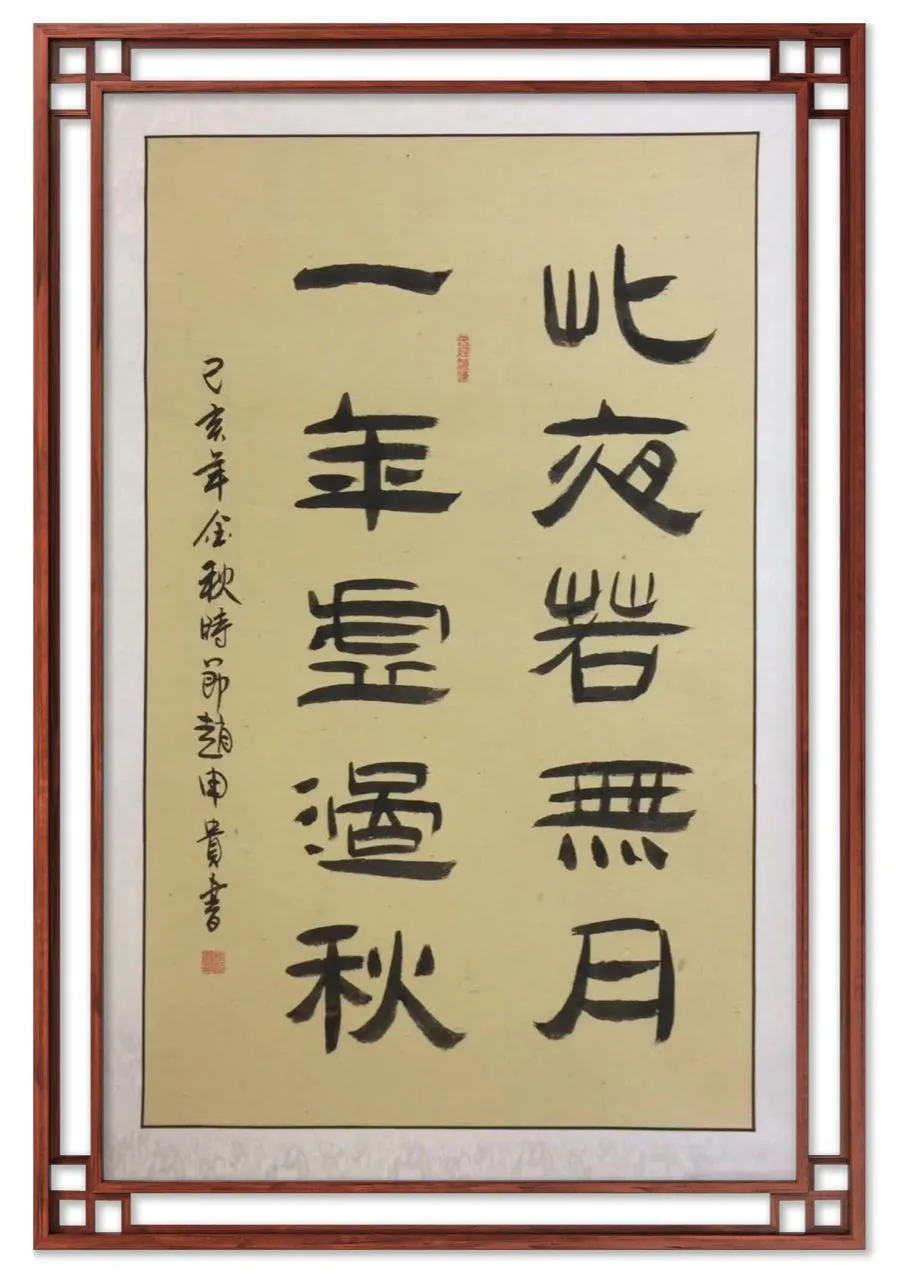 此夜若無月
一年虛過秋
己亥年金秋時節趙申貴書